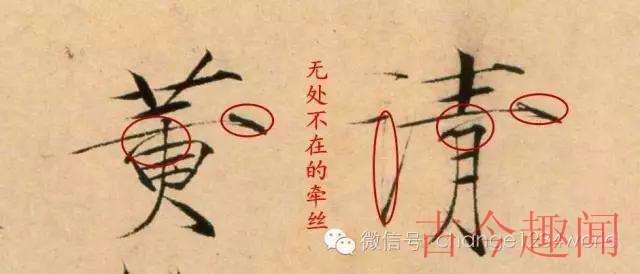 黃
无处不在的牵丝
清
微信号:
古今趣闻